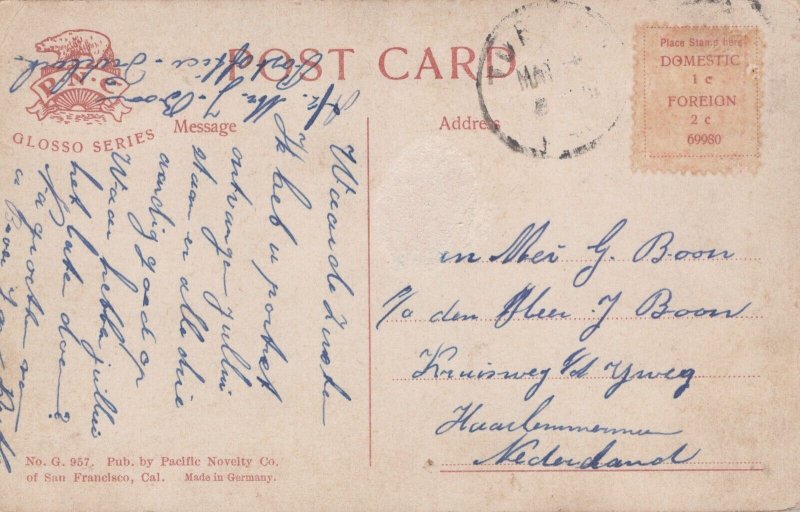 POST CARD
P.N.C.
GLOSSO SERIES
Message
Address
Place Stamp here
DOMESTIC
1c
FOREIGN
2c
69980
MAY
Mr. J. Boon
Post office
Waarde Zuster
Ik heb u portret
ontvangen jullui
staan er alle drie
aardig goed op
Waar hebben jullui
het late doen?
Na groete van
u Broer
en Mej G. Boon
p/a den Heer J Boon
Kruisweg b/d Yweg
Haarlemmermeer
Nederland
No. G. 957. Pub. by Pacific Novelty Co.
of San Francisco, Cal. Made in Germany.